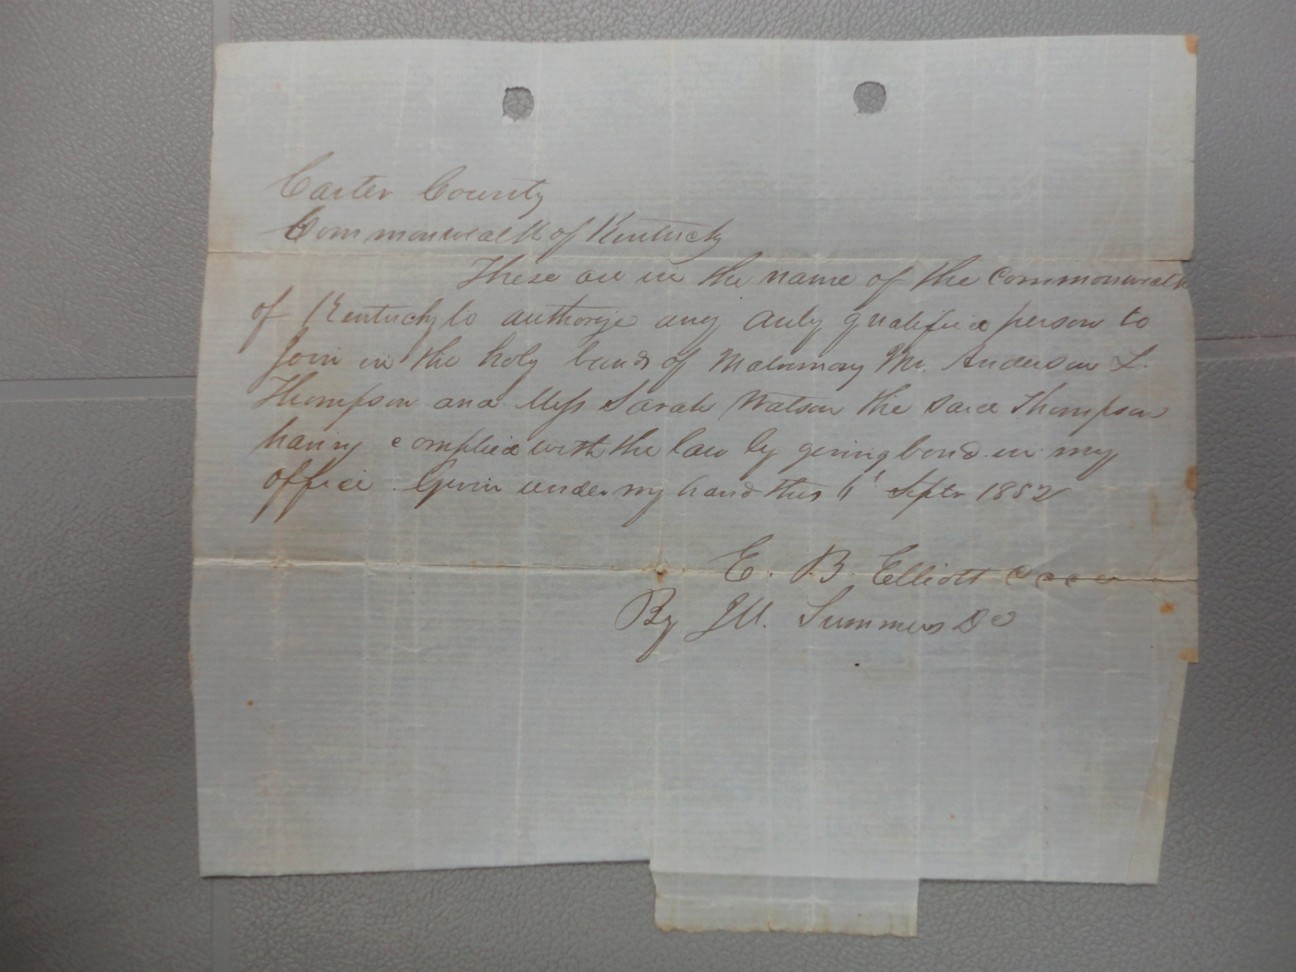 Carter County
Commonwealth of Kentucky
These are in the name of the Commonwealth
of Kentucky to authorize any duly qualified person to
Join in the holy bonds of Matrimony Mr. Anderson L.
Thompson and Miss Sarah Watson the said Thompson
having complied with the law by giving bond in my
office. Given under my hand this Septr 1852
E. B. Elliott
By Summers DC